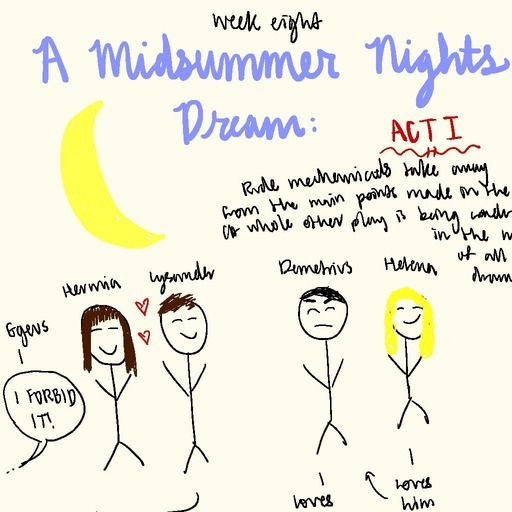 week eight
A Midsummer Nights
Dream:
ACT I
Rude mechanicals take away
from the main points made in the
a whole other play is being
in the
of all
Hermia
Lysander
Demetrius
Helena
Egeus
I FORBID
IT!
loves
loves
him